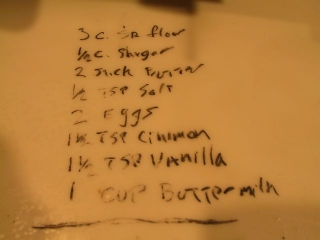 3 c. SR flour
1/2 c. Shuger
2 Stick Button
1/2 TSP Salt
2 Eggs
1 1/2 TSP Cinimon
1 1/2 TSP Vanilla
1 CUP Buttermilk